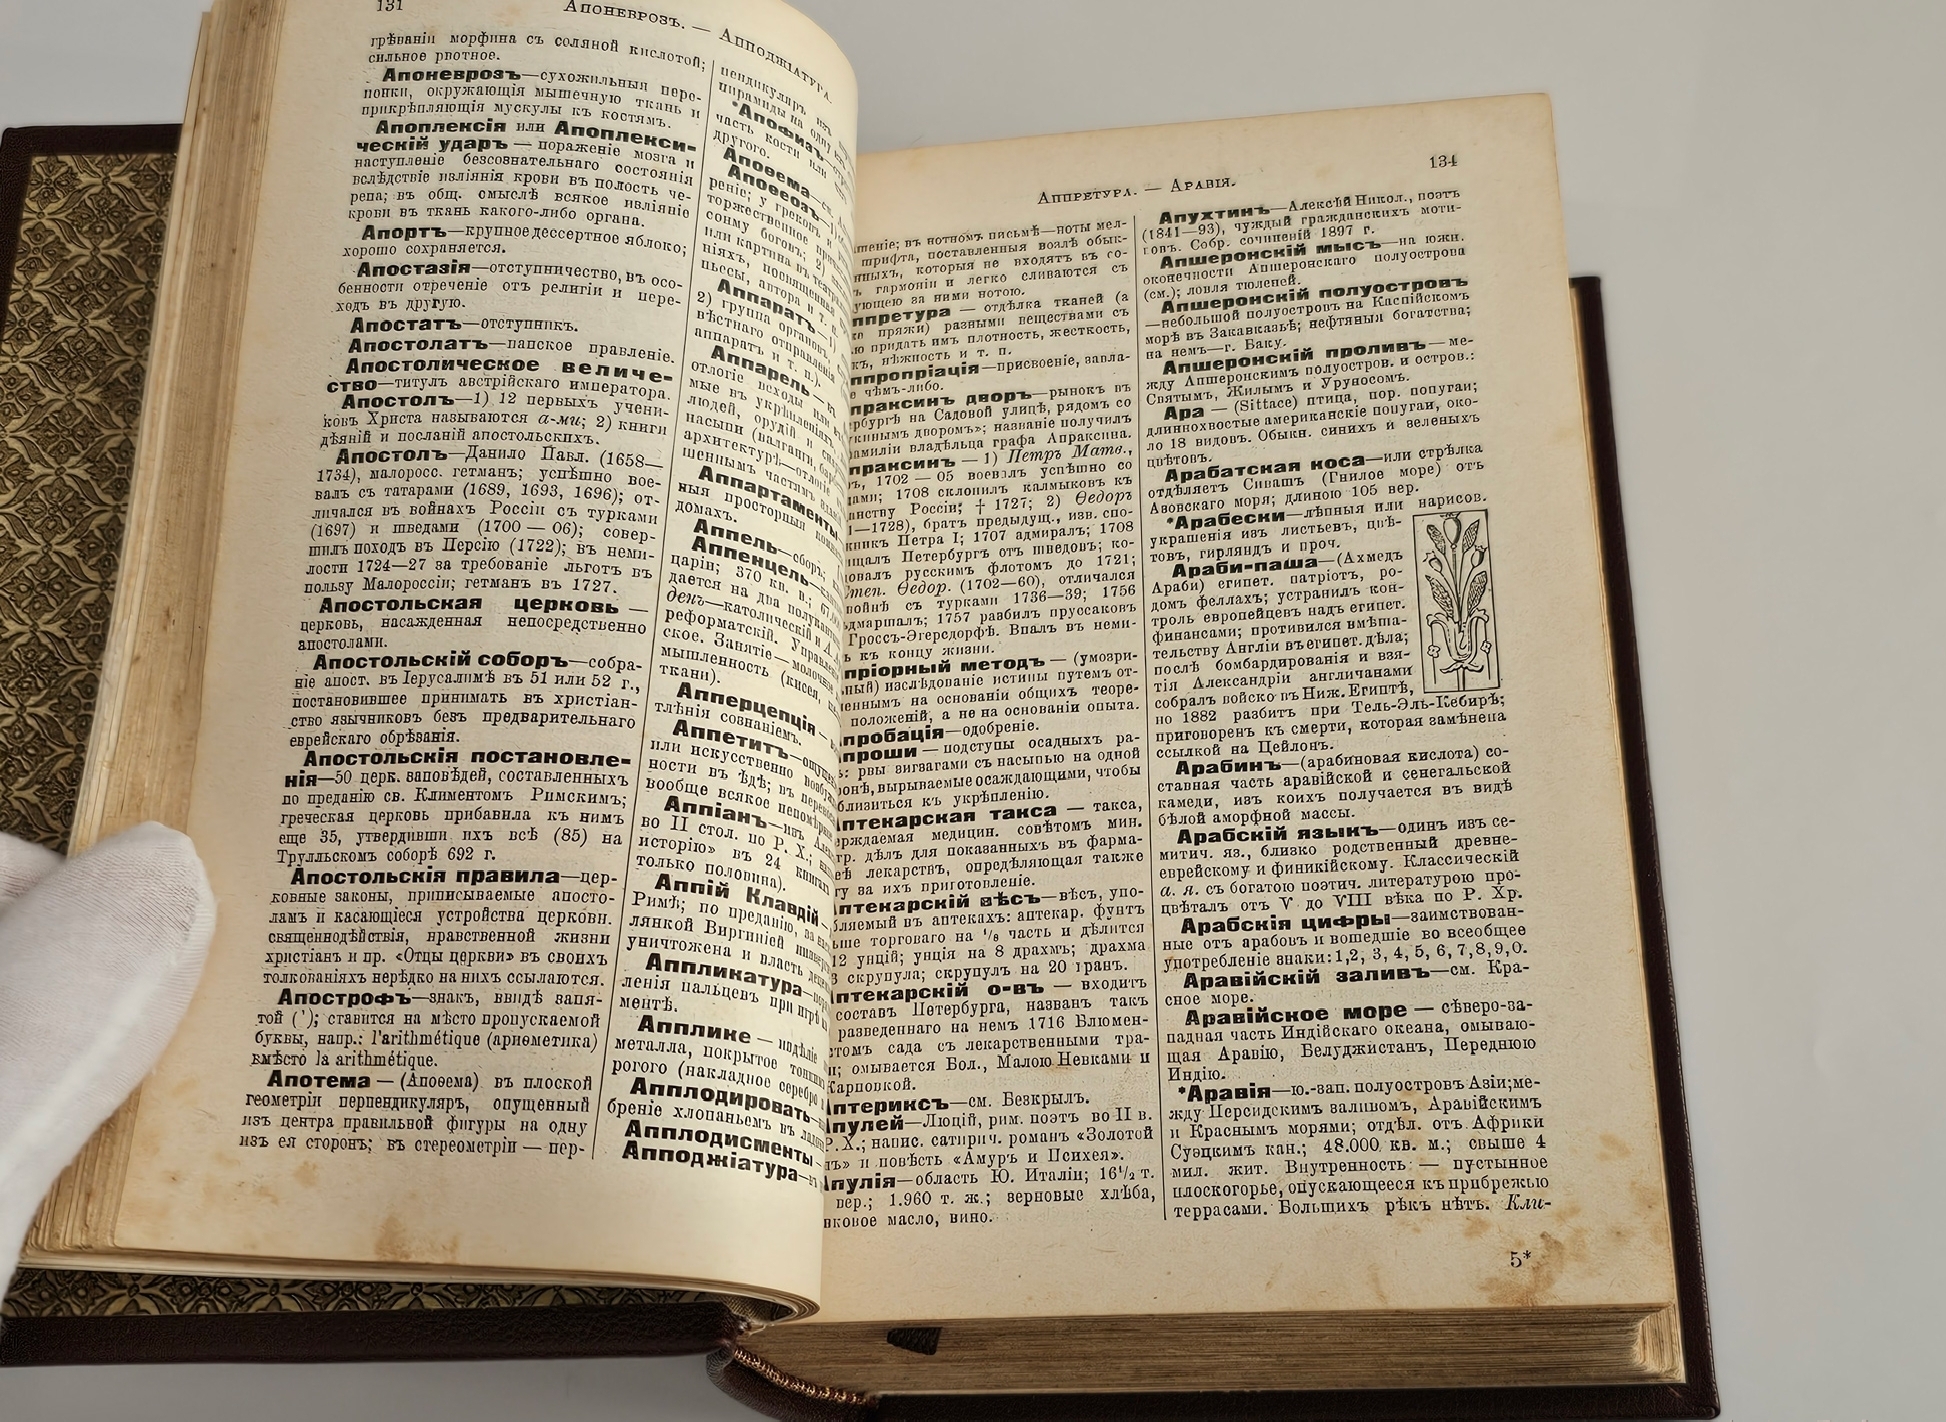 131
Апоневрозъ. — Апподжіатура.
грѣваніи морфина съ соляной кислотой;
сильное рвотное.
Апоневрозъ—сухожильныя перо-
понки, окружающія мышечную ткань и
прикрѣпляющія мускулы къ костямъ.
Апоплексія или Апоплекси-
ческій ударъ — пораженіе мозга и
наступленіе безсознательнаго состоянія
вслѣдствіе изліянія крови въ полость че-
репа; въ общ. смыслѣ всякое изліяніе
крови въ ткань какого-либо органа.
Апортъ—крупное дессертное яблоко;
хорошо сохраняется.
Апостазія—отступничество, въ осо-
бенности отреченіе отъ религіи и пере-
ходъ въ другую.
Апостатъ—отступникъ.
Апостолатъ—папское правленіе.
Апостолическое величе-
ство—титулъ австрійскаго императора.
Апостолъ—1) 12 первыхъ учени-
ковъ Христа называются а-ми; 2) книги
дѣяній и посланій апостольскихъ.
Апостолъ—Данило Павл. (1658—
1734), малоросс. гетманъ; успѣшно вое-
валъ съ татарами (1689, 1693, 1696); от-
личался въ войнахъ Россіи съ турками
(1697) и шведами (1700 — 06); совер-
шилъ походъ въ Персію (1722); въ неми-
лости 1724—27 за требованіе льготъ въ
пользу Малороссіи; гетманъ въ 1727.
Апостольская церковь —
церковь, насажденная непосредственно
апостолами.
Апостольскій соборъ—собра-
ніе апост. въ Іерусалимѣ въ 51 или 52 г.,
постановившее принимать въ христіан-
ство язычниковъ безъ предварительнаго
еврейскаго обрѣзанія.
Апостольскія постановле-
нія—50 церк. заповѣдей, составленныхъ
по преданію св. Климентомъ Римскимъ;
греческая церковь прибавила къ нимъ
еще 35, утвердивши ихъ всѣ (85) на
Трулльскомъ соборѣ 692 г.
Апостольскія правила—цер-
ковные законы, приписываемые апосто-
ламъ и касающіеся устройства церковн.
священнодѣйствія, нравственной жизни
христіанъ и пр. «Отцы церкви» въ своихъ
толкованіяхъ нерѣдко на нихъ ссылаются.
Апострофъ—знакъ, ввидѣ запя-
той ('); ставится на мѣсто пропускаемой
буквы, напр.: l'arithmétique (ариѳметика)
вмѣсто la arithmétique.
Апотема — (Апоѳема) въ плоской
геометріи перпендикуляръ, опущенный
изъ центра правильной фигуры на одну
изъ ея сторонъ; въ стереометріи — пер-
пендикуляръ изъ
пирамиды на одну
*Апофизъ—
часть кости или
другого.
Апоѳема—см.
Апоѳеозъ—1)
реніе; у грековъ
торжественное
сонму боговъ; 2)
или картина въ театр
ніяхъ, посвященная
пьесы, автора и т. п.
Аппаратъ—1)
2) группа органовъ,
вѣстнаго отправленія
аппаратъ и т. п.).
Аппарель—
отлогіе всходы или
мые въ укрѣпленіяхъ
людей, орудій и
насыпи (валганги,
архитектурѣ—отлогіе
шеннымъ частямъ
Аппартаменты
ныя просторныя
домахъ.
Аппель—сборъ;
Аппенцель—кан
царіи; 370 кв. в.;
дается на два полукантона
денъ—католическій и А.
реформатскій. Управленіе
ское. Занятіе—молочное
мышленность (кисея,
ткани).
Апперцепція —
тлѣнія сознаніемъ.
Аппетитъ—ощущ
или искусственно возбу
ности въ ѣдѣ; въ
вообще всякое непомѣрн
Аппіанъ—изъ Алек
во II стол. по Р. Х.;
исторію» въ 24 книгахъ
только половина).
Аппій Клавдій—
Римѣ; по преданію, за
лянкой Виргиніей
уничтожена и власть
Аппликатура—
ленія пальцевъ при игрѣ на
ментѣ.
Апплике — издѣліе
металла, покрытое тонкимъ
рогого (накладное серебро
Апплодировать—
бреніе хлопаньемъ въ ладо
Апплодисменты—
Апподжіатура—въ
Аппретура. — Аравія.
134
шеніе; въ нотномъ письмѣ—ноты мел-
шрифта, поставленныя возлѣ обык-
нныхъ, которыя не входятъ въ со-
гармоніи и легко сливаются съ
ующею за ними нотою.
ппретура — отдѣлка тканей (а
пряжи) разными веществами съ
ью придать имъ плотность, жесткость,
къ, нѣжность и т. п.
ппропріація—присвоеніе, завла-
чѣмъ-либо.
праксинъ дворъ—рынокъ въ
рбургѣ на Садовой улицѣ, рядомъ со
кинымъ дворомъ»; названіе получилъ
амиліи владѣльца графа Апраксина.
праксинъ — 1) Петръ Матв.,
1702 — 05 воевалъ успѣшно со
ами; 1708 склонилъ калмыковъ къ
анству Россіи; † 1727; 2) Ѳедоръ
1—1728), братъ предыдущ., изв. спо-
никъ Петра I; 1707 адмиралъ; 1708
щалъ Петербургъ отъ шведовъ; ко-
овалъ русскимъ флотомъ до 1721;
Степ. Ѳедор. (1702—60), отличался
войнѣ съ турками 1736—39; 1756
ьдмаршалъ; 1757 разбилъ пруссаковъ
Гроссъ-Эгерсдорфѣ. Впалъ въ неми-
къ концу жизни.
пріорный методъ — (умозри-
ный) изслѣдованіе истины путемъ от-
еннымъ на основаніи общихъ теоре-
положеній, а не на основаніи опыта.
пробація—одобреніе.
проши — подступы осадныхъ ра-
: рвы зигзагами съ насыпью на одной
онѣ, вырываемые осаждающими, чтобы
близиться къ укрѣпленію.
птекарская такса — такса,
ерждаемая медицин. совѣтомъ мин.
тр. дѣлъ для показанныхъ въ фарма-
еѣ лекарствъ, опредѣляющая также
ту за ихъ приготовленіе.
птекарскій вѣсъ—вѣсъ, упо-
бляемый въ аптекахъ: аптекар. фунтъ
ьше торговаго на 1/8 часть и дѣлится
12 унцій; унція на 8 драхмъ; драхма
3 скрупула; скрупулъ на 20 гранъ.
птекарскій о-въ — входитъ
составъ Петербурга, названъ такъ
разведеннаго на немъ 1716 Блюмен-
стомъ сада съ лекарственными тра-
и; омывается Бол., Малою Невками и
Карповкой.
птериксъ—см. Безкрылъ.
пулей—Люцій, рим. поэтъ во II в.
Р. Х.; напис. сатирич. романъ «Золотой
лъ» и повѣсть «Амуръ и Психея».
пулія—область Ю. Италіи; 16½ т.
вер.; 1.960 т. ж.; зерновые хлѣба,
нковое масло, вино.
Апухтинъ—Алексѣй Никол., поэтъ
(1841—93), чуждый гражданскихъ моти-
вовъ. Собр. сочиненій 1897 г.
Апшеронскій мысъ—на южн.
оконечности Апшеронскаго полуострова
(см.); ловля тюленей.
Апшеронскій полуостровъ
—небольшой полуостровъ на Каспійскомъ
морѣ въ Закавказьѣ; нефтяныя богатства;
на немъ—г. Баку.
Апшеронскій проливъ — ме-
жду Апшеронскимъ полуостров. и остров.:
Святымъ, Жилымъ и Уруносомъ.
Ара — (Sittace) птица, пор. попугаи;
длиннохвостые американскіе попугаи, око-
ло 18 видовъ. Обыкн. синихъ и зеленыхъ
цвѣтовъ.
Арабатская коса—или стрѣлка
отдѣляетъ Сивашъ (Гнилое море) отъ
Азовскаго моря; длиною 105 вер.
*Арабески—лѣпныя или нарисов.
украшенія изъ листьевъ, цвѣ-
товъ, гирляндъ и проч.
Араби-паша—(Ахмедъ
Араби) египет. патріотъ, ро-
домъ феллахъ; устранилъ кон-
троль европейцевъ надъ египет.
финансами; противился вмѣша-
тельству Англіи въ египет. дѣла;
послѣ бомбардированія и взя-
тія Александріи англичанами
собралъ войско въ Ниж. Египтѣ,
но 1882 разбитъ при Тель-Эль-Кебирѣ;
приговоренъ къ смерти, которая замѣнена
ссылкой на Цейлонъ.
Арабинъ—(арабиновая кислота) со-
ставная часть аравійской и сенегальской
камеди, изъ коихъ получается въ видѣ
бѣлой аморфной массы.
Арабскій языкъ—одинъ изъ се-
митич. яз., близко родственный древне-
еврейскому и финикійскому. Классическій
а. я. съ богатою поэтич. литературою про-
цвѣталъ отъ V до VIII вѣка по Р. Хр.
Арабскія цифры—заимствован-
ные отъ арабовъ и вошедшіе во всеобщее
употребленіе знаки: 1, 2, 3, 4, 5, 6, 7, 8, 9, 0.
Аравійскій заливъ—см. Кра-
сное море.
Аравійское море — сѣверо-за-
падная часть Индійскаго океана, омываю-
щая Аравію, Белуджистанъ, Переднюю
Индію.
*Аравія—ю.-зап. полуостровъ Азіи; ме-
жду Персидскимъ заливомъ, Аравійскимъ
и Краснымъ морями; отдѣл. отъ Африки
Суэцкимъ кан.; 48.000 кв. м.; свыше 4
мил. жит. Внутренность — пустынное
плоскогорье, опускающееся къ прибрежью
террасами. Большихъ рѣкъ нѣтъ. Кли-
5*